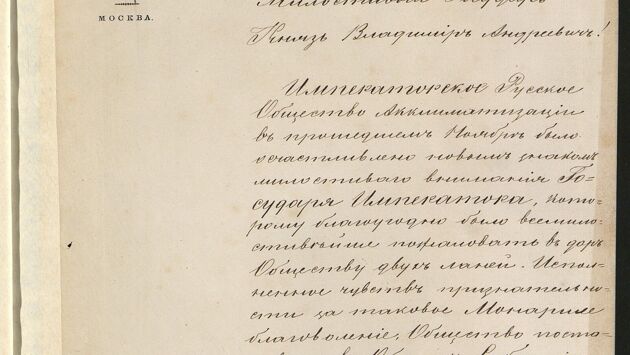 МОСКВА.
Милостивый Государь
Князь Владиміръ Андреевичъ!
Императорское Русское
Общество Акклиматизаціи
въ прошедшемъ Ноябрѣ было
осчастливлено новымъ знакомъ
милостиваго вниманія Го-
сударя Императора, кото-
рому благоугодно было всемило-
стивѣйше пожаловать въ даръ
Обществу двухъ ланей. Испол-
ненное чувствъ признательно-
сти за таковое Монаршее
благоволеніе, Общество поста-